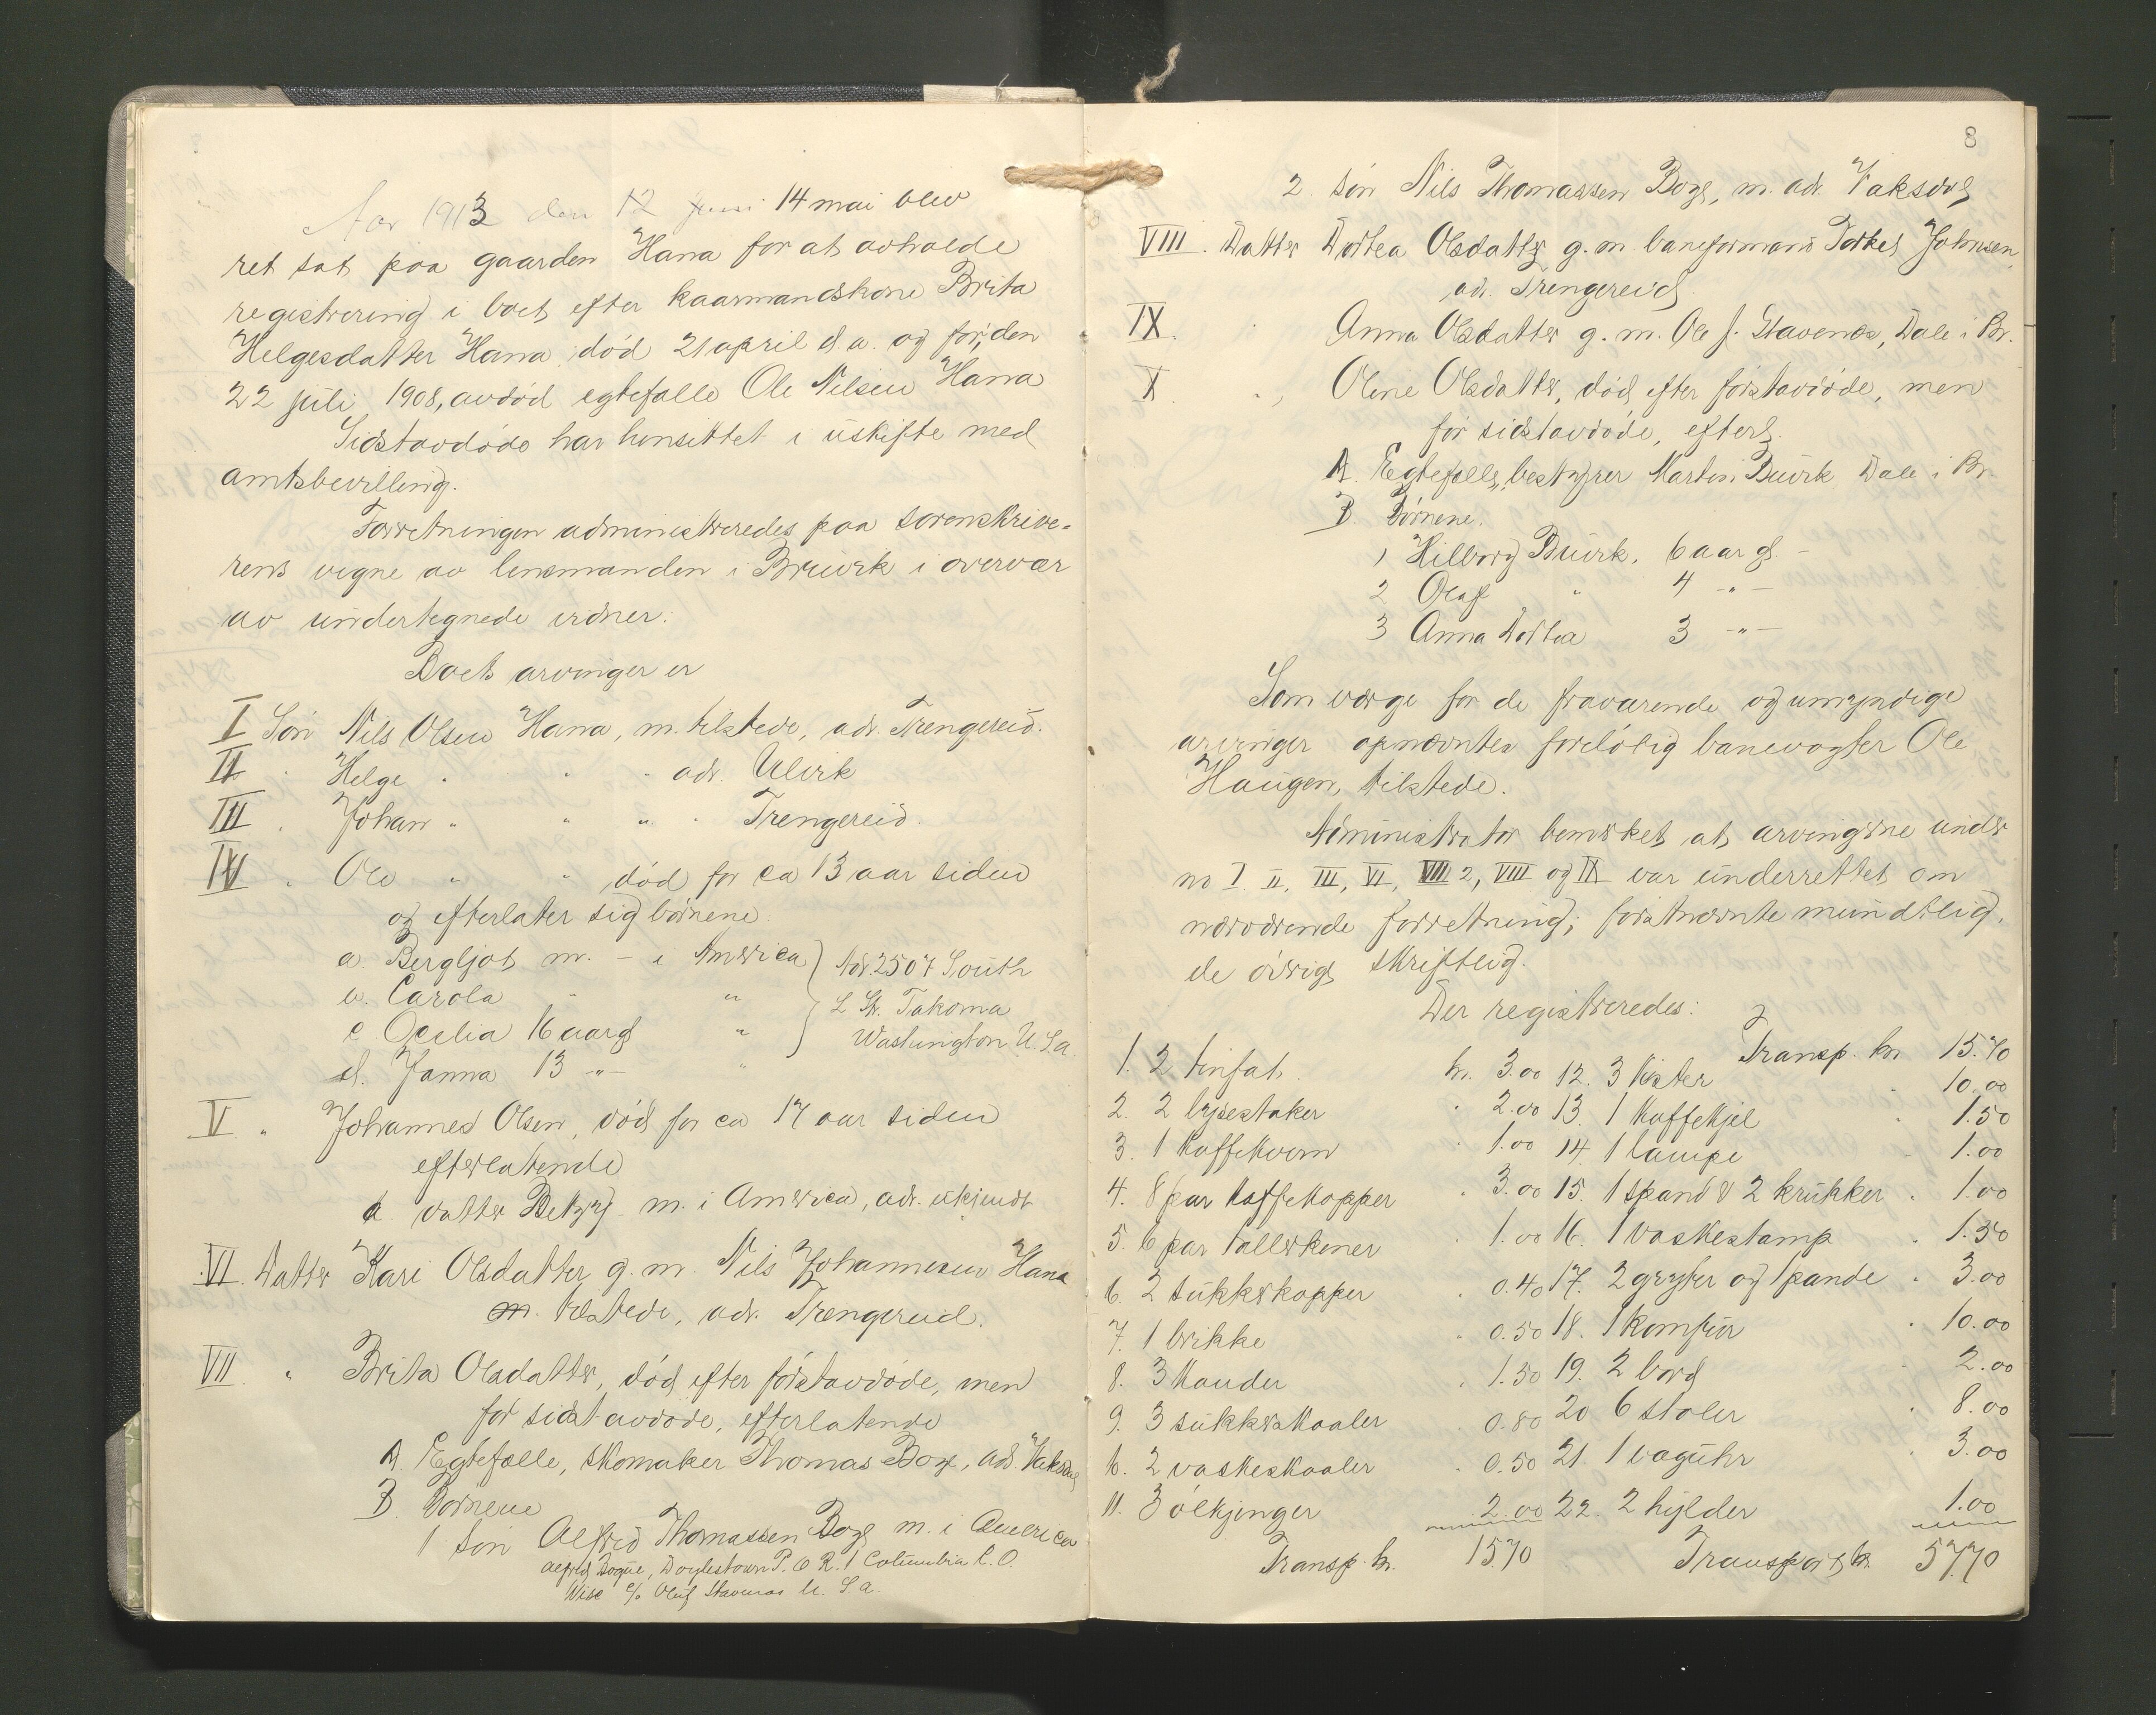 Aar 1913 den 12 juni 14 mai blev
ret sat paa gaarden Hana for at avholde
registrering i boet efter kaarmandskone Brita
Helgesdatter Hana død 21 april d.a. og for, den
22 juli 1908, avdød egtefælle Ole Nilsen Hana
Sidstavdøde har hensittet i uskifte med
amtsbevilling.
Forretningen administreredes paa sorenskrive-
rens vegne av lensmanden i Bruvik i overvær
av undertegnede vidner:
Boets arvinger er
I Søn Nils Olsen Hana, m. tilstede, adr. Trengereid.
II " Helge " " " adr. Ulvik
III " Johan " " " " Trengereid.
IV " Ole " " død for ca 13 aar siden
og efterlater sig børnene:
a. Bergljot m. - i America } Adr. 2507 South
b. Carola " " L St. Takoma
c Cecilia 16 aar gl " Washington U.S.a.
d. Janna 13 -"- "
V " Johannes Olsen, død for ca 17 aar siden
efterlatende
a. datter Betzy m. i America, adr. ukjendt
VI. Datter Kari Olsdatter g.m. Nils Johannesen Hana
m. tilstede, adr. Trengereid.
VII " Brita Olsdatter, død efter førstavdøde, men
før sidstavdøde, efterlatende
A Egtefælle, skomaker Thomas Boge, adr. Vaksdal
B Børnene
1 Søn Alfred Thomassen Boge m. i America
Alfred Bogue, Doylestown P.O R. 1 Columbia C.O.
Wisc c/o Oluf Stavenes U.S.a.
8
2. Søn Nils Thomassen Boge, m. adr. Vaksdal
VIII. Datter Dortea Olsdatter g.m. baneformand Torkel Johnsen,
adr. Trengereid
IX. " Anna Olsdatter g.m. Ole J. Stavenes, Dale i Br.
X. " Oline Olsdatter, død efter førstavdøde, men
før sidstavdøde, efterl.
A. Egtefælle, bestyrer Martin Buvik Dale i Br.
B. Børnene.
1 Hilborg Buvik, 6 aar gl. -
2 Olaf " 4 -"-
3 Anna Dortea 3 -"-
Som værge for de fraværende og umyndige
arvinger opnævntes foreløbig banevogter Ole
Haugen, tilstede.
Administrator bemerket at arvingerne under
no I II, III, VI, VII 2, VIII og IX var underrettet om
nærværende forretning; førstnævnte mundtlig,
de øvrige skriftlig.
Der registreredes:
1. 2 tinfat kr. 3.00
2. 2 lysestaker " 2.00
3. 1 kaffekvern " 1.00
4. 8 par kaffekopper " 3.00
5. 6 par tallerkener " 1.00
6. 2 sukkerkopper " 0.40
7. 1 brikke " 0.50
8. 3 kander " 1.50
9. 3 sukkerskaaler " 0.80
10. 2 vaskeskaaler " 0.50
11. 3 ølkjenger 2.00
Transp. kr. 15.70
Transp. kr 15.70
12. 3 kister " 10.00
13. 1 kaffekjel " 1.50
14. 1 lampe " 1.00
15. 1 spand & 2 krukker " 1.00
16. 1 vaskestamp " 1.50
17. 2 gryter og 1 pande " 3.00
18. 1 komfur " 10.00
19. 2 bord " 2.00
20 6 stoler " 8.00
21. 1 væguhr " 3.00
22. 2 hylder 1.00
Transport kr. 57.70